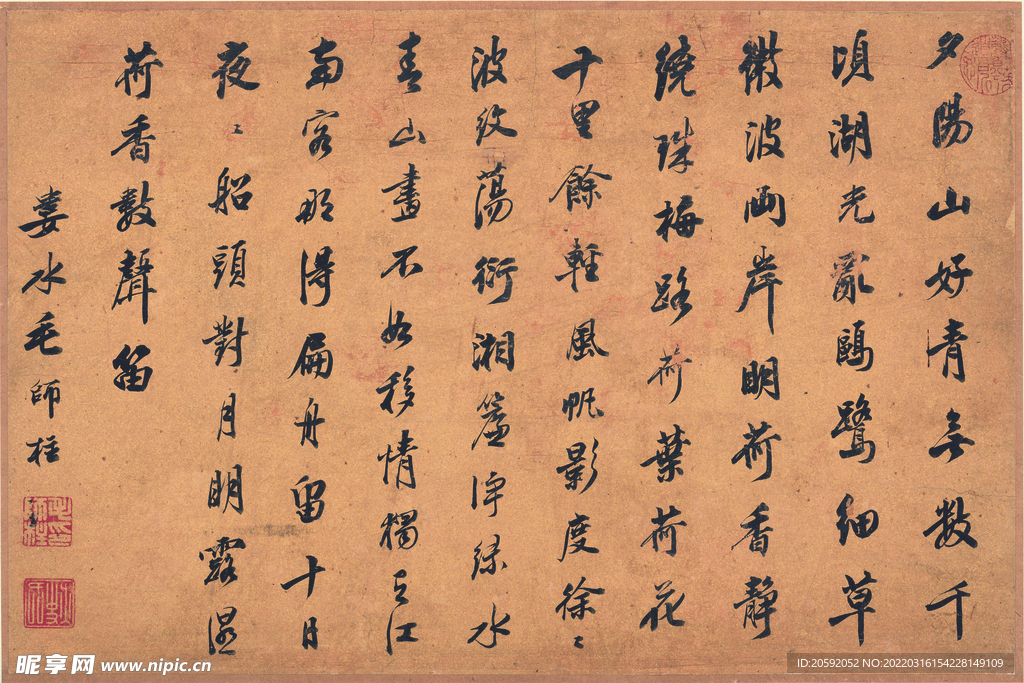 夕陽山好清無數千
頃湖光亂鷗鷺細草
微波兩岸明荷香靜
繞珠梅路荷葉荷花
十里餘輕風帆影度徐〻
波紋蕩衍湘簾淨綠水
春山畫不如移情獨之江
南客那得扁舟留十日
夜〻船頭對月明露濕
荷香數聲笛
婁水毛師柱
昵享网 www.nipic.cn
ID:20592052 NO:20220316154228149109